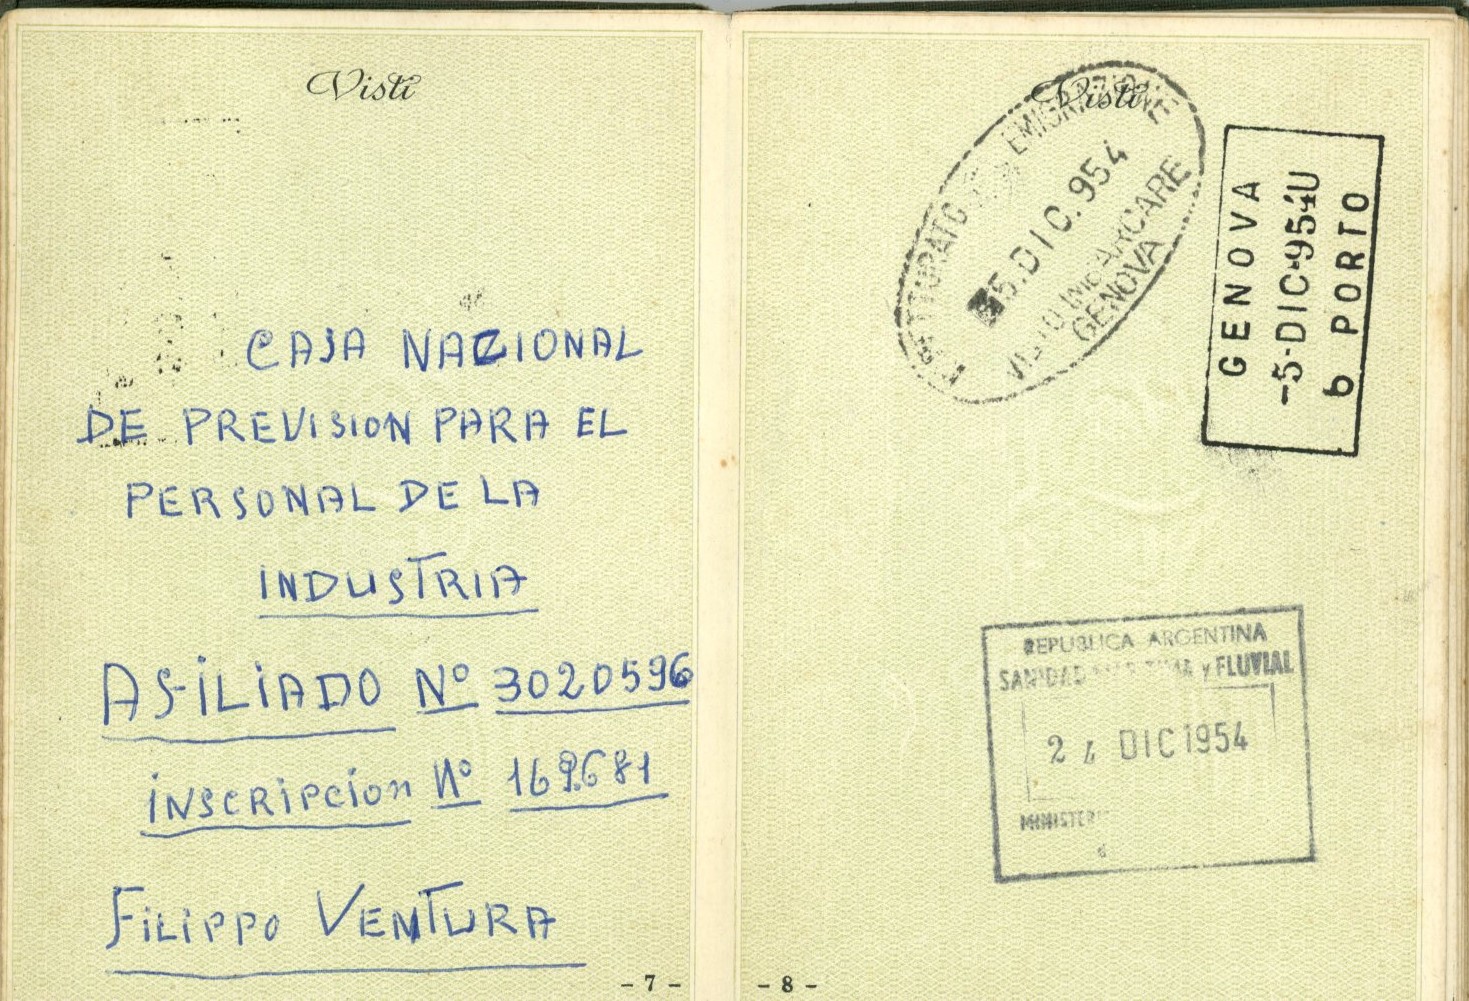 Visti
CAJA NACIONAL
DE PREVISION PARA EL
PERSONAL DE LA
INDUSTRIA
AFILIADO Nº 3020596
inscripcion Nº 169.681
FILIPPO VENTURA
- 7 -
Visti
EMIGRAZIONE
5.DIC.954
GENOVA
GENOVA
-5·DIC·954U
6 PORTO
REPUBLICA ARGENTINA
SANIDAD y FLUVIAL
DIC 1954
- 8 -